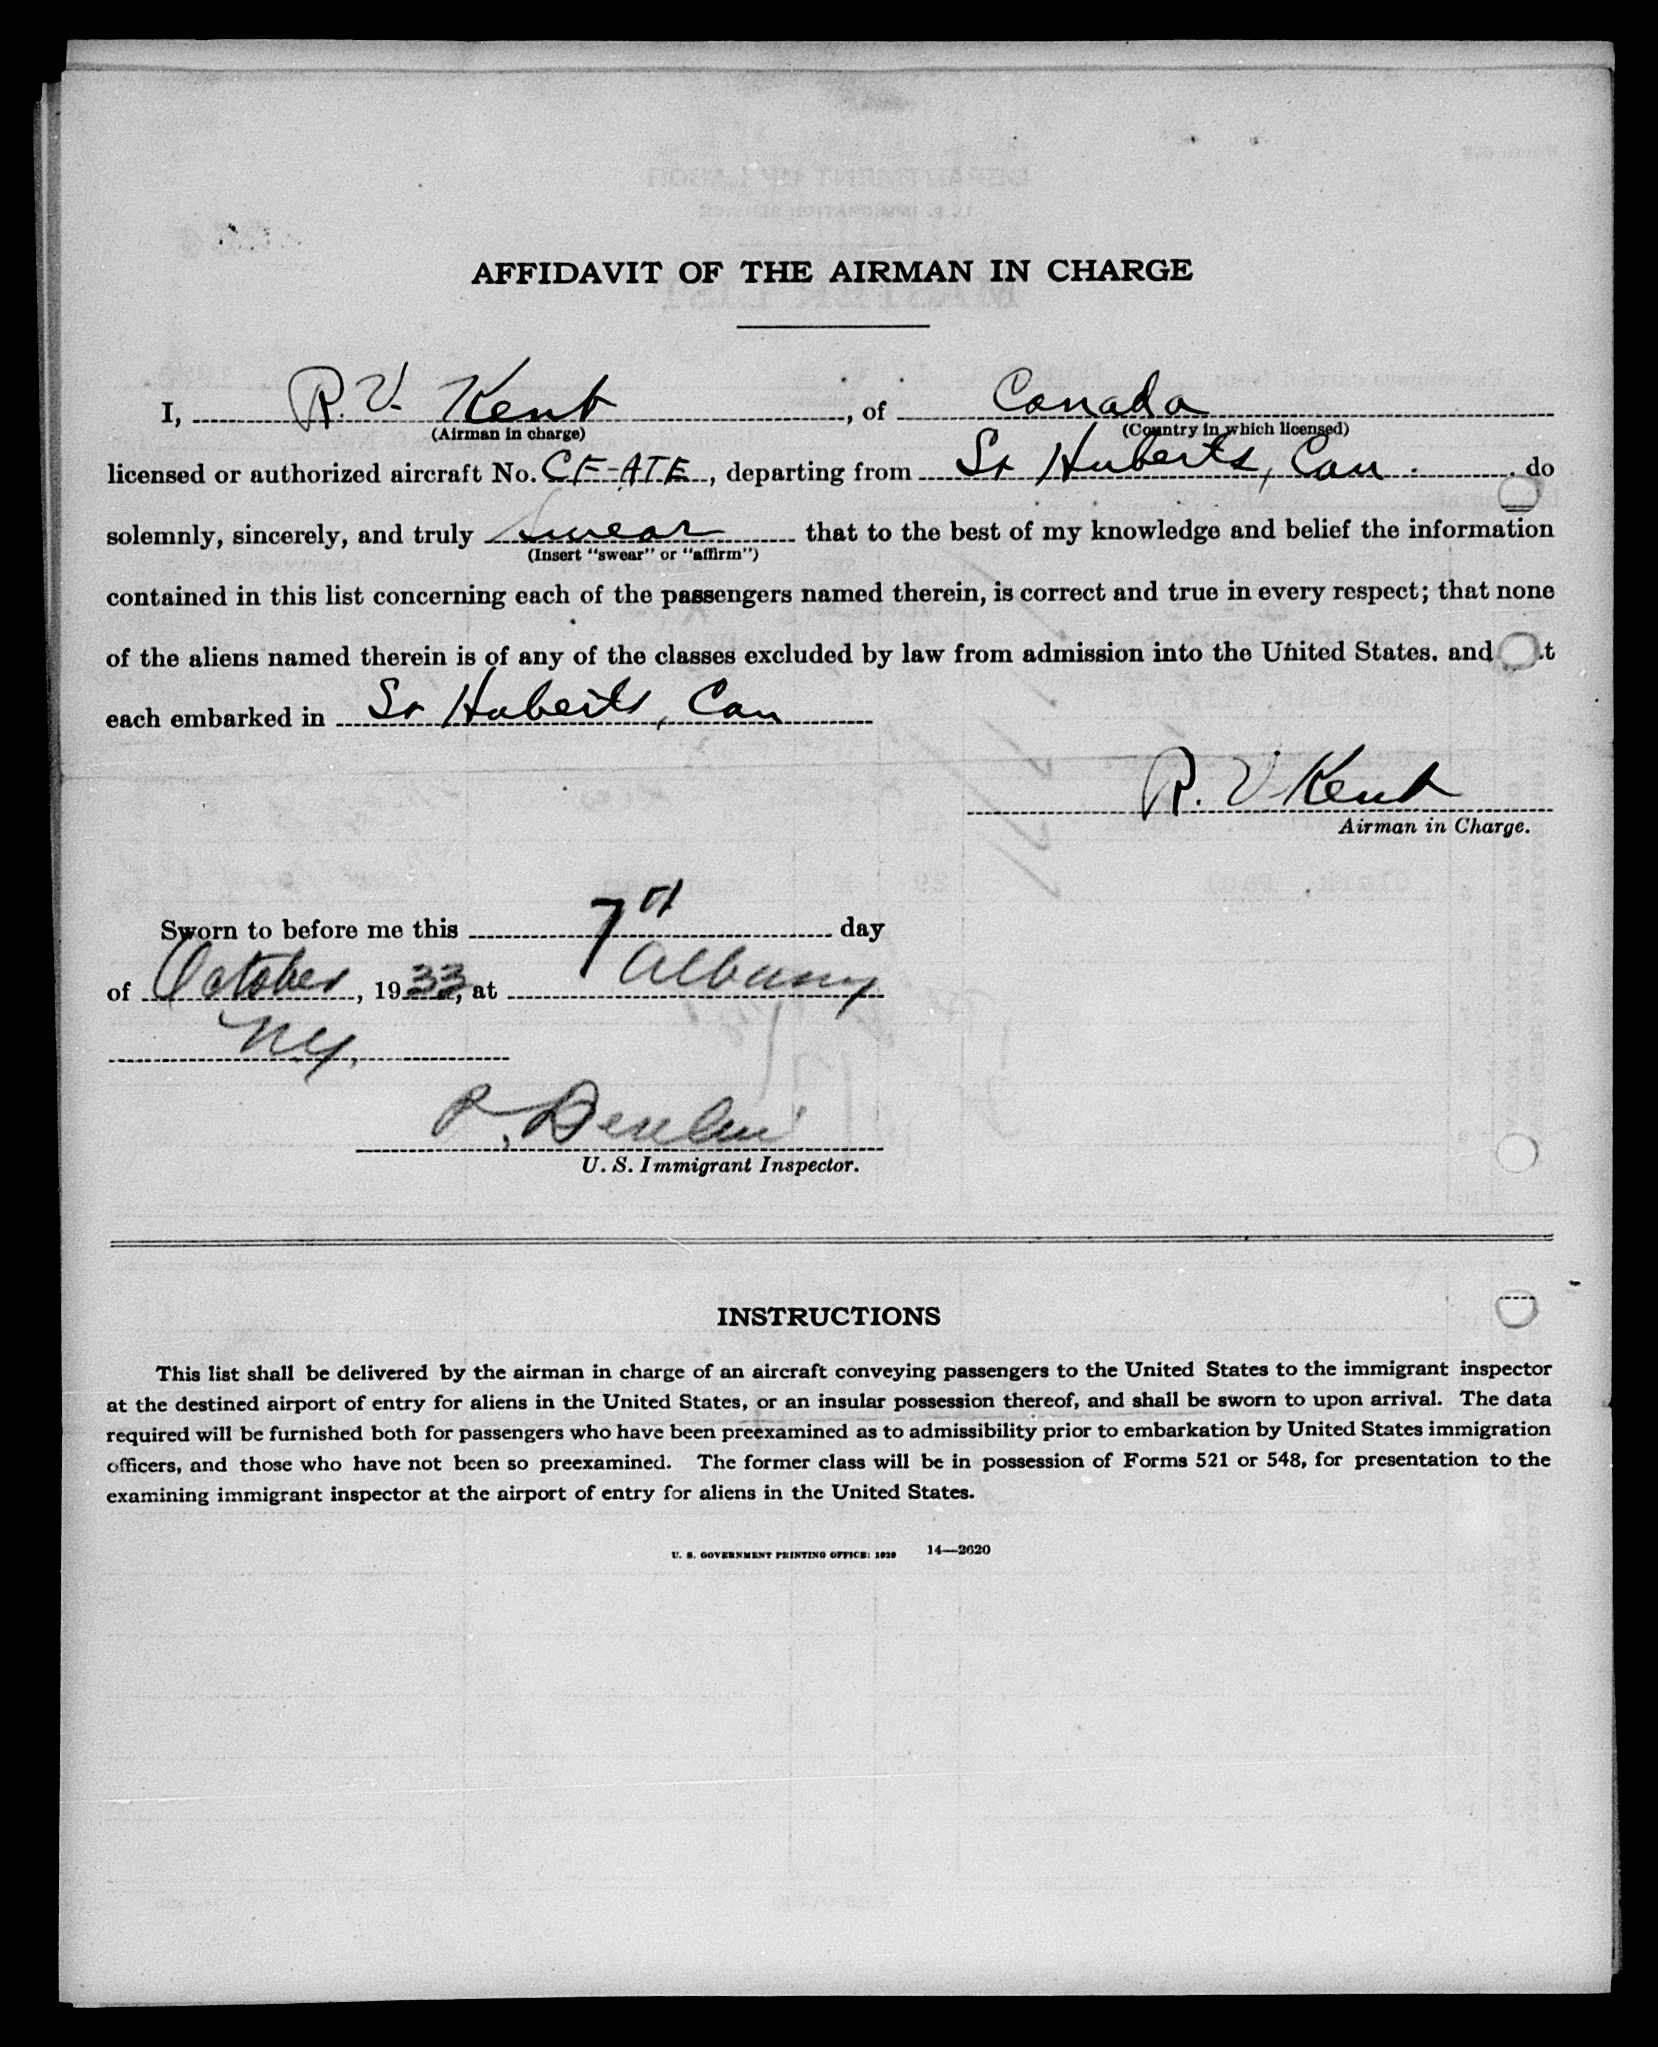 AFFIDAVIT OF THE AIRMAN IN CHARGE
I, R. V. Kent, of Canada
(Airman in charge) (Country in which licensed)
licensed or authorized aircraft No. CF-ATE, departing from St Huberts, Can. do
solemnly, sincerely, and truly swear that to the best of my knowledge and belief the information
(Insert "swear" or "affirm")
contained in this list concerning each of the passengers named therein, is correct and true in every respect; that none
of the aliens named therein is of any of the classes excluded by law from admission into the United States. and t
each embarked in St Huberts, Can
R. V. Kent
Airman in Charge.
Sworn to before me this 7th day
of October, 1933, at Albany
N.Y.
U. S. Immigrant Inspector.
INSTRUCTIONS
This list shall be delivered by the airman in charge of an aircraft conveying passengers to the United States to the immigrant inspector
at the destined airport of entry for aliens in the United States, or an insular possession thereof, and shall be sworn to upon arrival. The data
required will be furnished both for passengers who have been preexamined as to admissibility prior to embarkation by United States immigration
officers, and those who have not been so preexamined. The former class will be in possession of Forms 521 or 548, for presentation to the
examining immigrant inspector at the airport of entry for aliens in the United States.
U. S. GOVERNMENT PRINTING OFFICE: 1929 14—2620